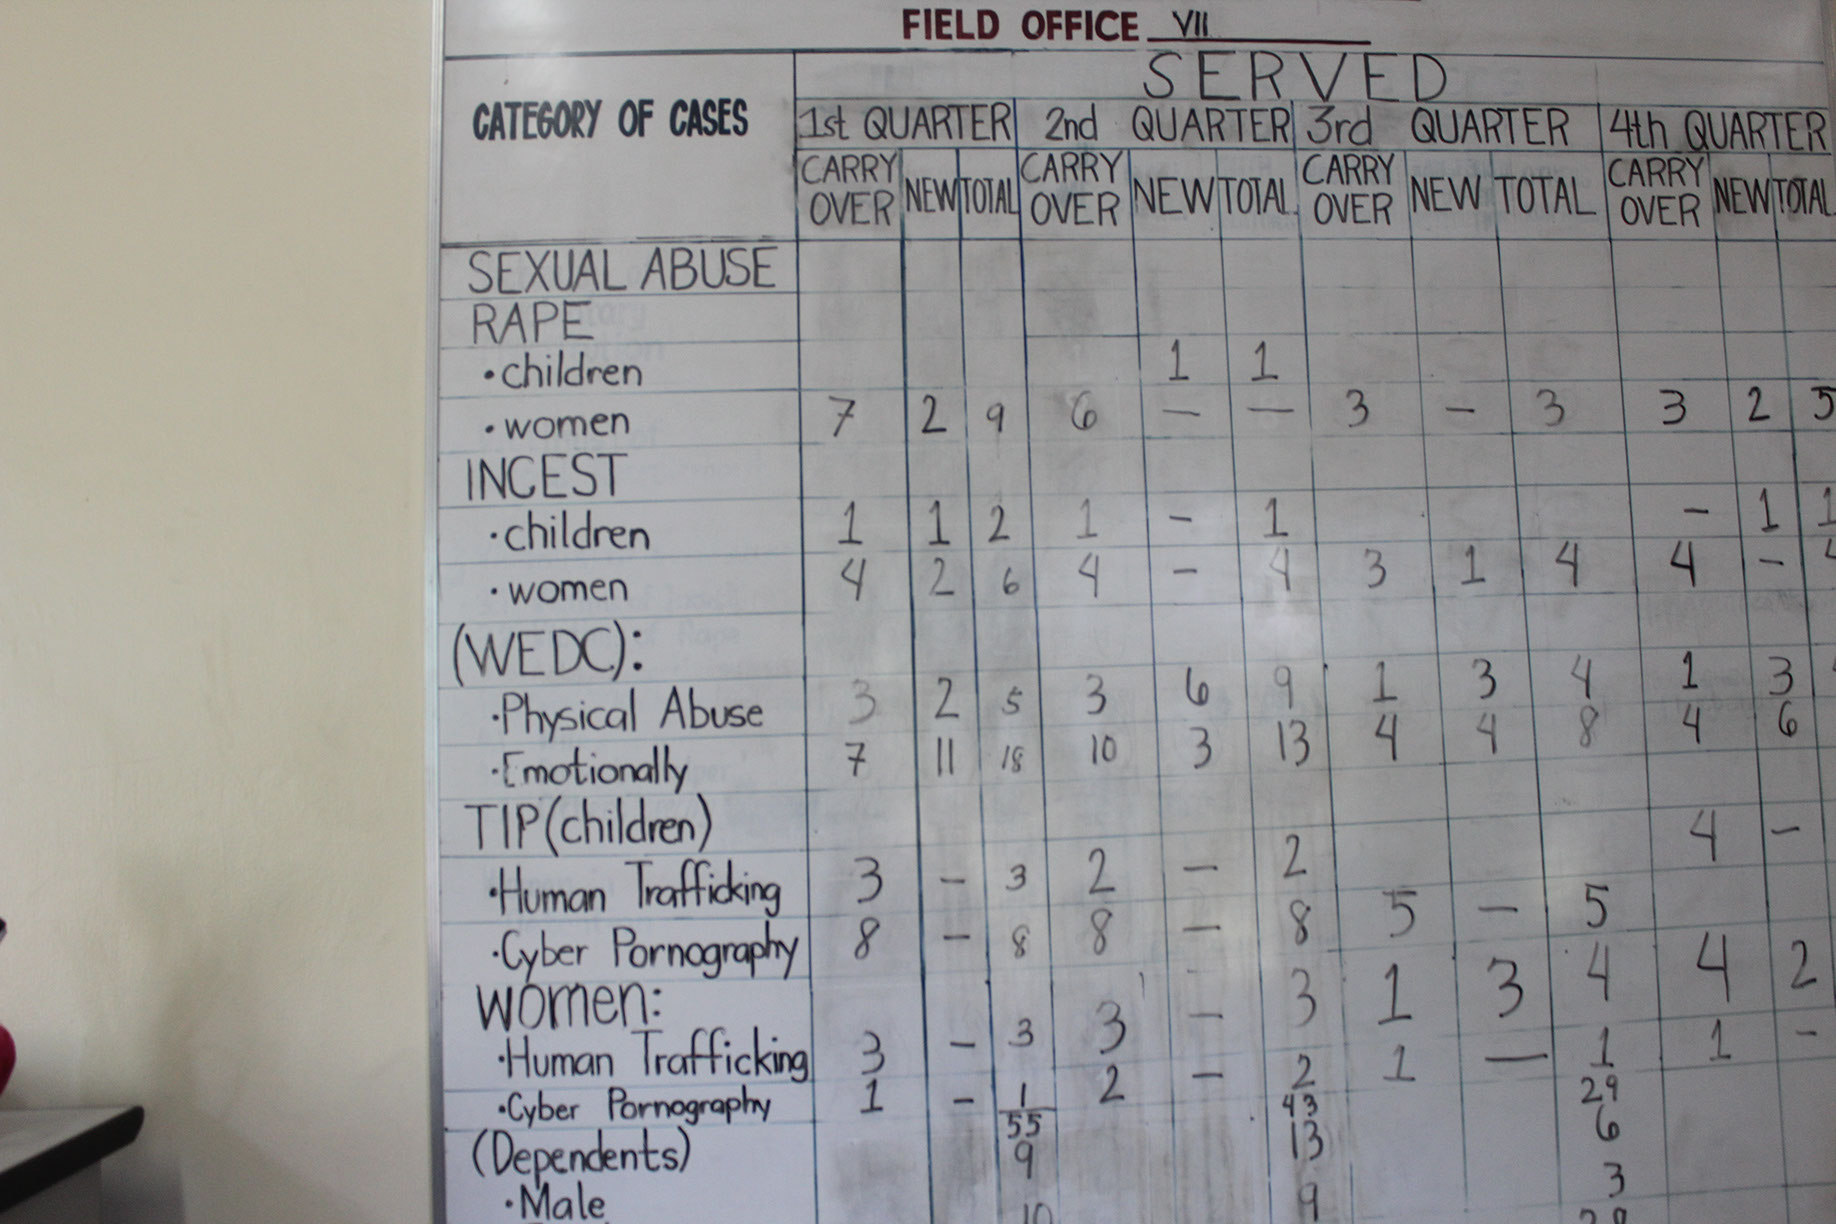 FIELD OFFICE VII
SERVED
CATEGORY OF CASES 1st QUARTER 2nd QUARTER 3rd QUARTER 4th QUARTER
CARRY OVER NEW TOTAL CARRY OVER NEW TOTAL CARRY OVER NEW TOTAL CARRY OVER NEW TOTAL
SEXUAL ABUSE
RAPE
• children 1 1
• women 7 2 9 6 — — 3 - 3 3 2 5
INCEST
• children 1 1 2 1 - 1 - 1 1
• women 4 2 6 4 - 4 3 1 4 4 -
(WEDC):
• Physical Abuse 3 2 5 3 6 9 1 3 4 1 3
• Emotionally 7 11 18 10 3 13 4 4 8 4 6
TIP (children) 4 -
• Human Trafficking 3 - 3 2 - 2
• Cyber Pornography 8 - 8 8 - 8 5 - 5
WOMEN:
• Human Trafficking 3 - 3 3 - 3 1 3 4 4 2
• Cyber Pornography 1 - 1 2 - 2 1 — 1 1 -
55 43 29
(Dependents) 9 13 6
• Male 10 9 3